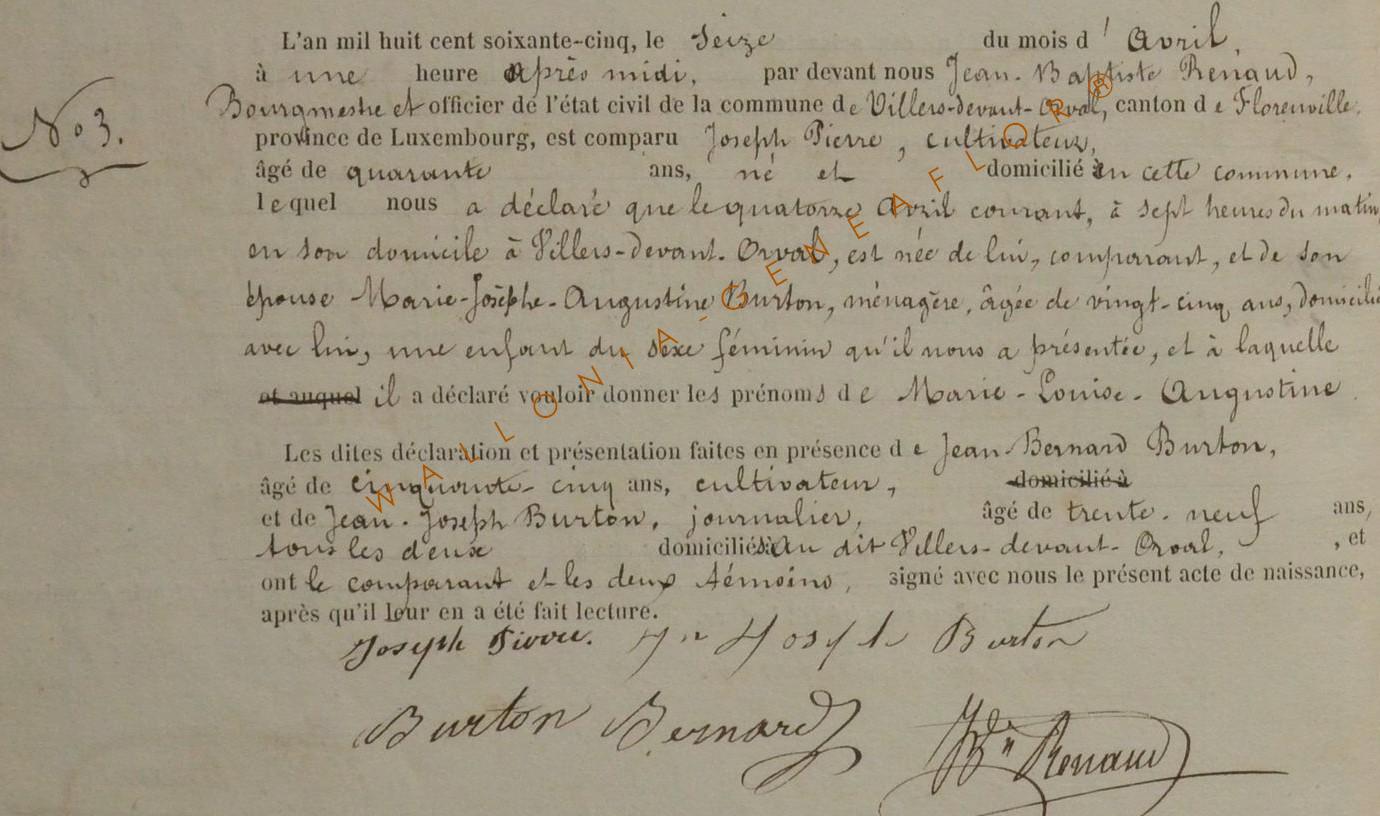 L'an mil huit cent soixante-cinq, le seize du mois d' Avril,
à une heure après midi, par devant nous Jean-Baptiste Renaud,
Bourgmestre et officier de l'état civil de la commune de Villers-devant-Orval, canton de Florenville,
N° 3.
province de Luxembourg, est comparu Joseph Pierre, cultivateur,
âgé de quarante ans, né et domicilié en cette commune.
lequel nous a déclaré que le quatorze Avril courant, à sept heures du matin,
en son domicile à Villers-devant-Orval, est née de lui, comparant, et de son
épouse Marie-Josèphe-Augustine Burton, ménagère, âgée de vingt-cinq ans, domiciliée
avec lui, une enfant du sexe féminin qu'il nous a présentée, et à laquelle
et auquel il a déclaré vouloir donner les prénoms de Marie-Louise-Augustine.
Les dites déclaration et présentation faites en présence de Jean-Bernard Burton,
âgé de cinquante-cinq ans, cultivateur, domicilié à
et de Jean-Joseph Burton, journalier, âgé de trente-neuf ans,
tous les deux domiciliés au dit Villers-devant-Orval, , et
ont le comparant et les deux témoins, signé avec nous le présent acte de naissance,
après qu'il leur en a été fait lecture.
Joseph Pierre. Jn Joseph Burton
Burton Bernard Renaud
WALLONIA-GENEAFLOR®